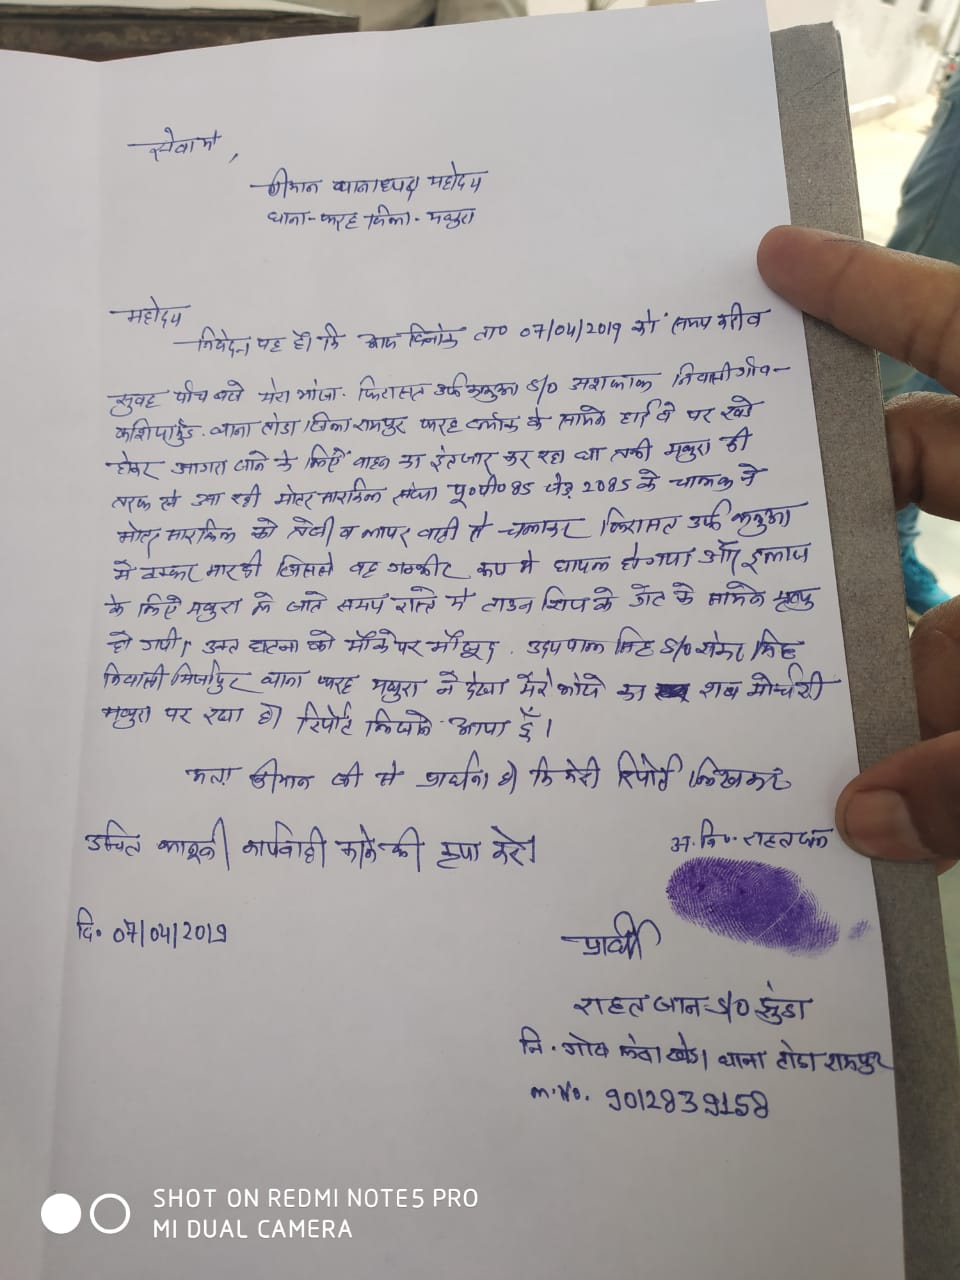 सेवामे,
श्रीमान थानाध्यक्ष महोदय
थाना-फरह जिला-मथुरा
महोदय
निवेदन यह है कि आज दिनांक ता० 07/04/2019 को समय करीव
सुवह पाँच बजे मेरा भांजा किरासत उर्फ कलुआ S/O अशफाक निवासी गाँव-
थाना टांडा जिला रामपुर फरह व्लॉक के सामने हाई वे पर खडे
होकर आगरा जाने के लिऐं वाहन का इंतजार कर रहा था तभी मथुरा की
तरफ से आ रही मोटर साईकिल संख्या यू०पी० 85 जेड 2085 के चालक ने
मोटर साईकिल को तेजी व लापरवाही से चलाकर किरासत उर्फ कलुआ
में टक्कर मार दी जिससे वह गम्भीर रूप से घायल हो गया और इलाज
के लिऐं मथुरा ले जाते समय रास्ते में टाउन शिप के गेट के सामने मृत्यु
हो गयी। उक्त घटना को मौके पर मौजूद उदयपाल सिंह S/O सिंह
निवासी मिर्जापुर थाना फरह मथुरा ने देखा मेरे भांजे का शव मोर्चरी
मथुरा पर रखा है। रिपोर्ट लिखाने आया हूँ।
अतः श्रीमान जी से प्रार्थना है कि मेरी रिपोर्ट लिखकर
उचित कानूनी कार्यवाही करने की कृपा करें।
अ. नि०. राहत जान
दि० 07/04/2019
प्रार्थी
राहत जान S/O झुंडा
नि. गाँव थाना टांडा रामपुर
m.No. 9012839158
SHOT ON REDMI NOTE5 PRO
MI DUAL CAMERA